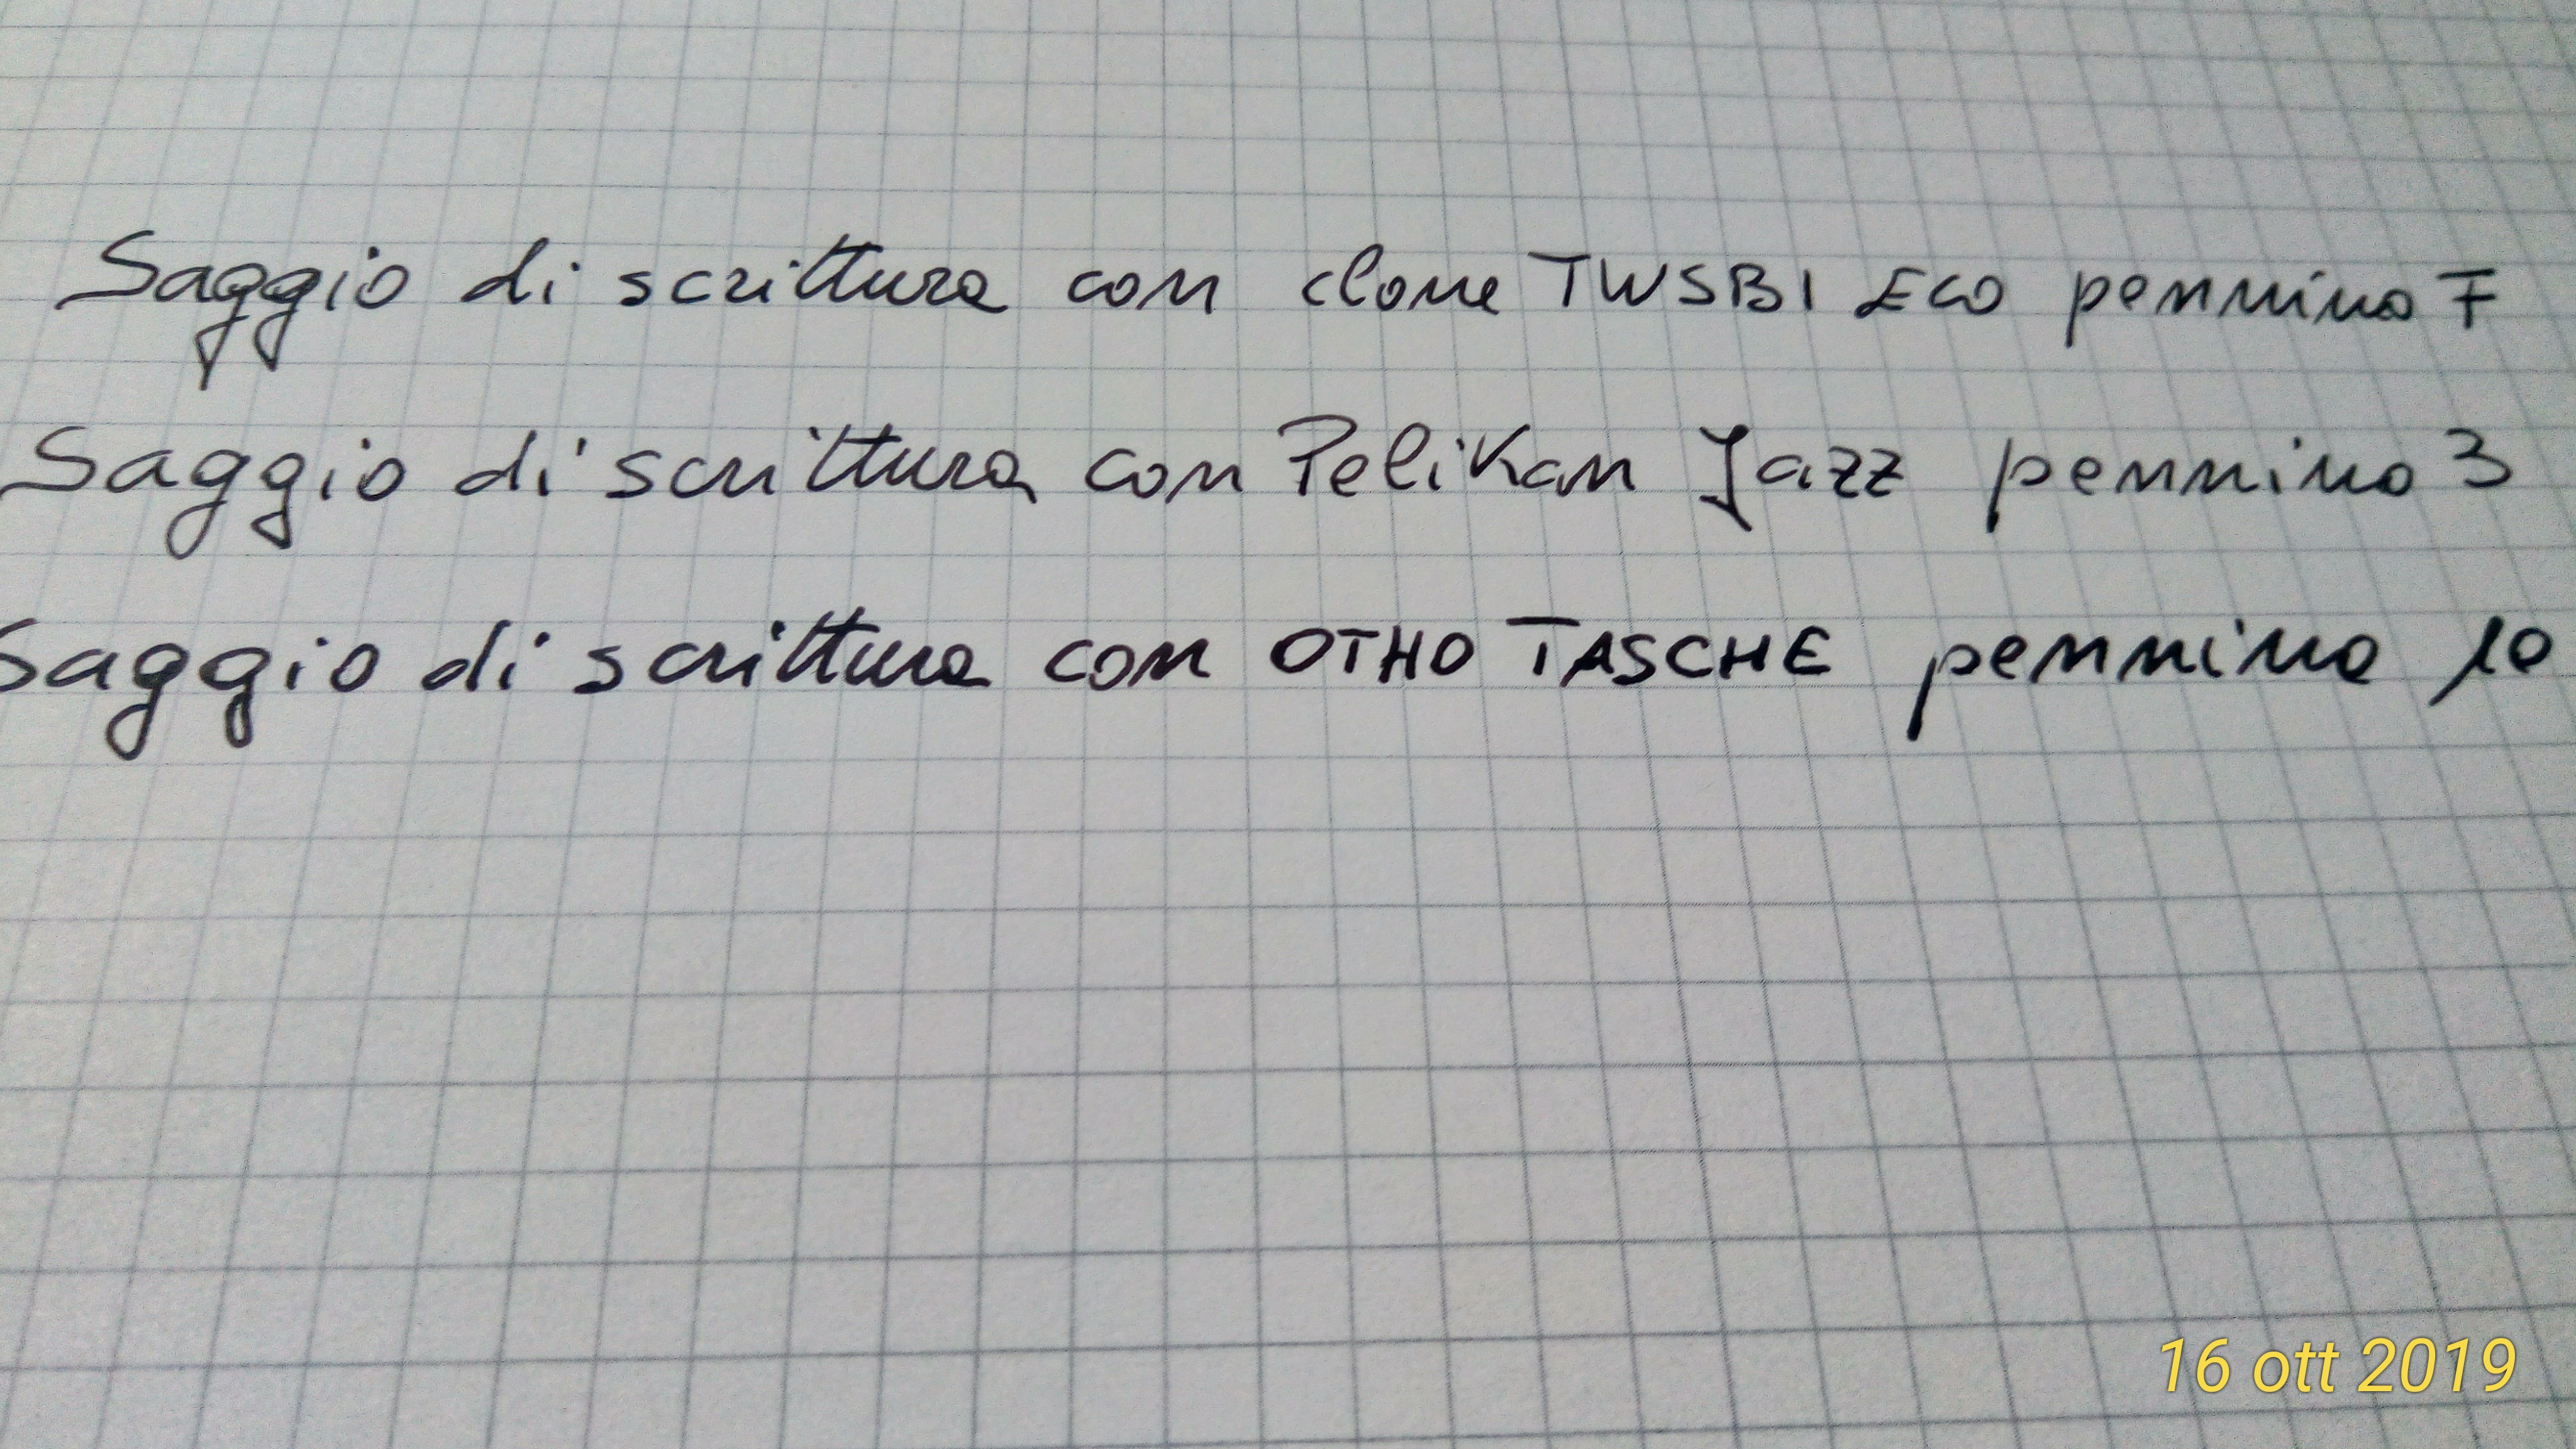 Saggio di scrittura con clone TWSBI ECO pennino F
Saggio di scrittura con Pelikan Jazz pennino 3
Saggio di scrittura con OTHO TASCHE pennino 10
16 ott 2019